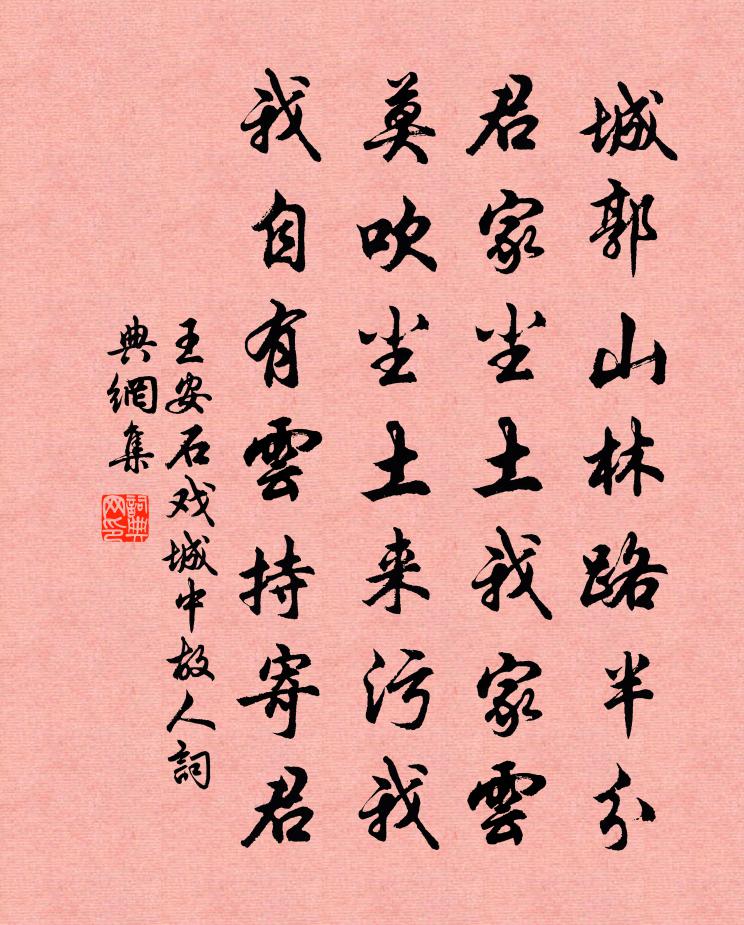 城郭山林路半分
君家尘土我家雲
莫吹尘土来污我
我自有雲持寄君
王安石戏城中故人詞
典網集
詞典网印